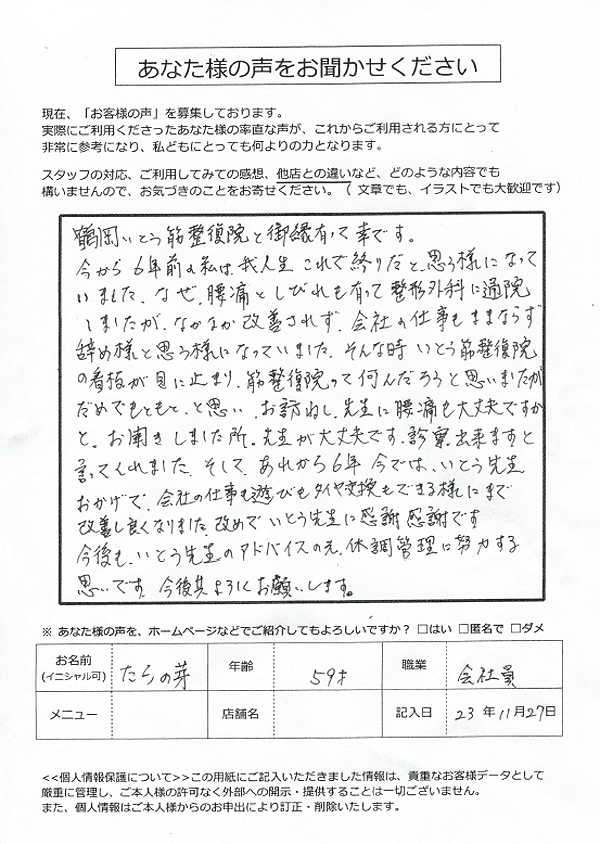 あなた様の声をお聞かせください
現在、「お客様の声」を募集しております。
実際にご利用くださったあなた様の率直な声が、これからご利用される方にとって
非常に参考になり、私どもにとっても何よりの力となります。
スタッフの対応、ご利用してみての感想、他店との違いなど、どのような内容でも
構いませんので、お気づきのことをお寄せください。（文章でも、イラストでも大歓迎です）
鶴岡いとう筋整復院と御縁有って幸です。
今から6年前の私は、我人生これで終りだと、思う様になって
いました。なぜ、腰痛としびれも有って整形外科に通院
しましたが、なかなか改善されず、会社の仕事もままならず
辞め様と思う様になっていました。そんな時いとう筋整復院
の看板が目に止まり、筋整復院って何んだろうと思いましたが
だめでもともと、と思い、お訪ねし、先生に腰痛も大丈夫ですか
と。お聞きしました所。先生が大丈夫です、診察出来ますと
言ってくれました。そして、あれから6年今では、いとう先生
おかげで、会社の仕事も遊びもタイヤ交換もできる様にまで
改善し良くなりました。改めでいとう先生に感謝感謝です
今後も、いとう先生のアドバイスの元、休調管理に努力する
思いです。今後共よろしくお願いします。
※ あなた様の声を、ホームページなどでご紹介してもよろしいですか？ □はい □匿名で □ダメ
お名前 たらの芽 年齢 59才 職業 会社員
(イニシャル可)
メニュー 店舗名 記入日 23年11月27日
<<個人情報保護について>>この用紙にご記入いただきました情報は、貴重なお客様データとして
厳重に管理し、ご本人様の許可なく外部への開示・提供することは一切ございません。
また、個人情報はご本人様からのお申出により訂正・削除いたします。